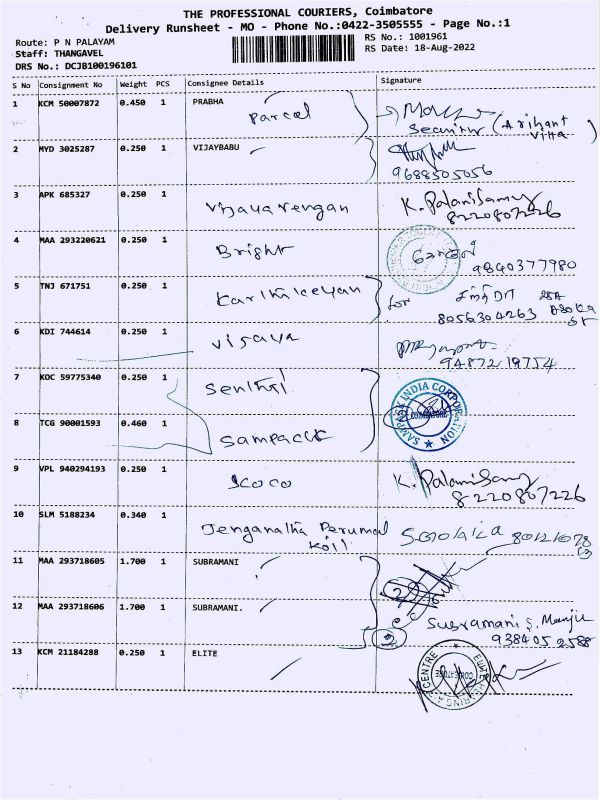 THE PROFESSIONAL COURIERS, Coimbatore
Delivery Runsheet - MO - Phone No.:0422-3505555 - Page No.:1
Route: P N PALAYAM
Staff: THANGAVEL
DRS No.: DCJB100196101
RS No.: 1001961
RS Date: 18-Aug-2022
S No Consignment No Weight PCS Consignee Details Signature
1 KCM 50007872 0.450 1 PRABHA
Parcel
Security (Arihant
2 MYD 3025287 0.250 1 VIJAYBABU
9688505056
3 APK 685327 0.250 1 Vijaya rengan K. Palanisamy
8220807226
4 MAA 293220621 0.250 1 Bright
9840377980
5 TNJ 671751 0.250 1 Karthikeyan for
8056304263
6 KDI 744614 0.250 1 Vijaya
9487219754
7 KOC 59775340 0.250 1 Senthil
SAMPACK INDIA CORPORATION
COIMBATORE
8 TCG 90001593 0.460 1 Sampack
9 VPL 940294193 0.250 1 K. Palanisamy
8220807226
10 SLM 5188234 0.340 1 Jenganatha Perumal
Koil
11 MAA 293718605 1.700 1 SUBRAMANI
12 MAA 293718606 1.700 1 SUBRAMANI.
Subramani S. Manju
938405 2588
13 KCM 21184288 0.250 1 ELITE
ELITE HEARING AID CENTRE